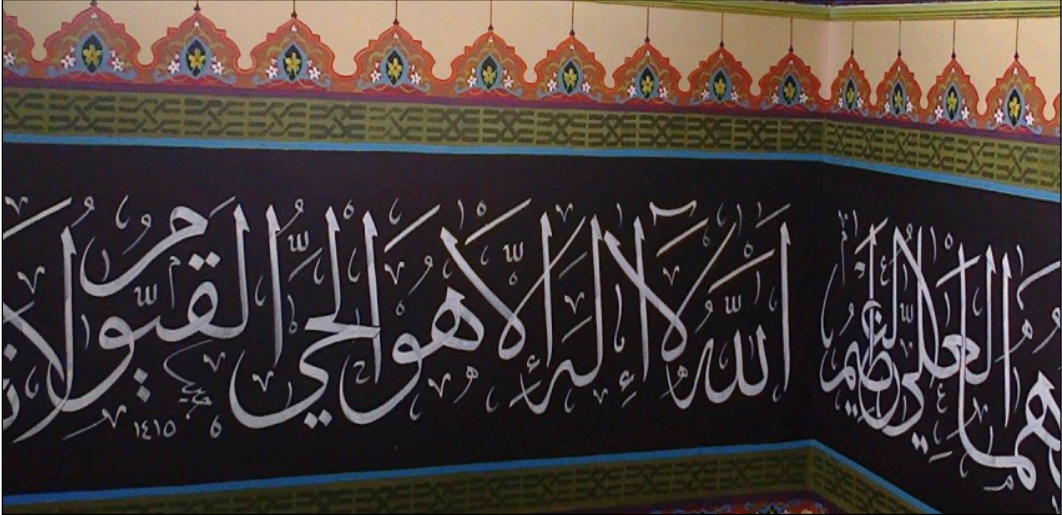 هُمَا الْعَلِيُّ الْعَظِيمُ
اَللّٰهُ لَآ إِلَهَ إِلَّا هُوَ الْحَيُّ الْقَيُّومُ لَا
١٤١٥